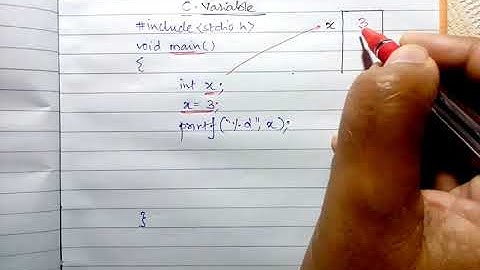 C-Variable
#include<stdio.h>
void main()
{
int x;
x = 3;
printf("%d", x);
}
x 3